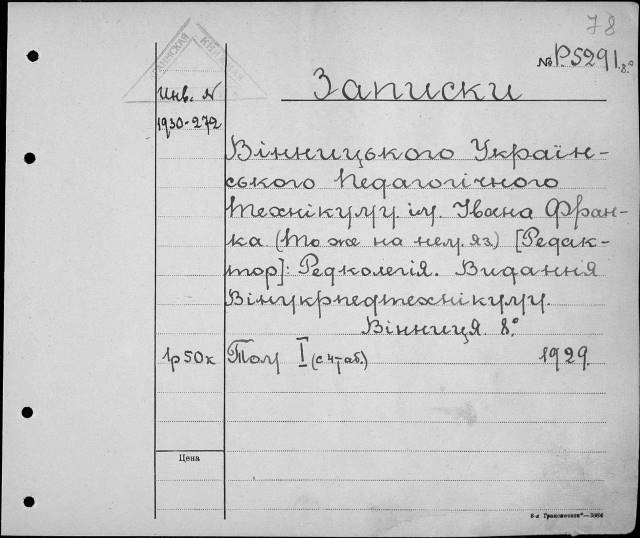 78
№ P.5291.8°
КНИЖНАЯ
Инв. N
1930-272
Записки
Вінницького Україн-
ського Педагогічного
Технікуму ім. Івана Фран-
ка (То же на нем. яз.) [Редак-
тор]: Редколегія. Видання
Вінукрпедтехнікуму.
Вінниця 8°.
1р 50к Том I (с 4 таб.) 1929.
Цена